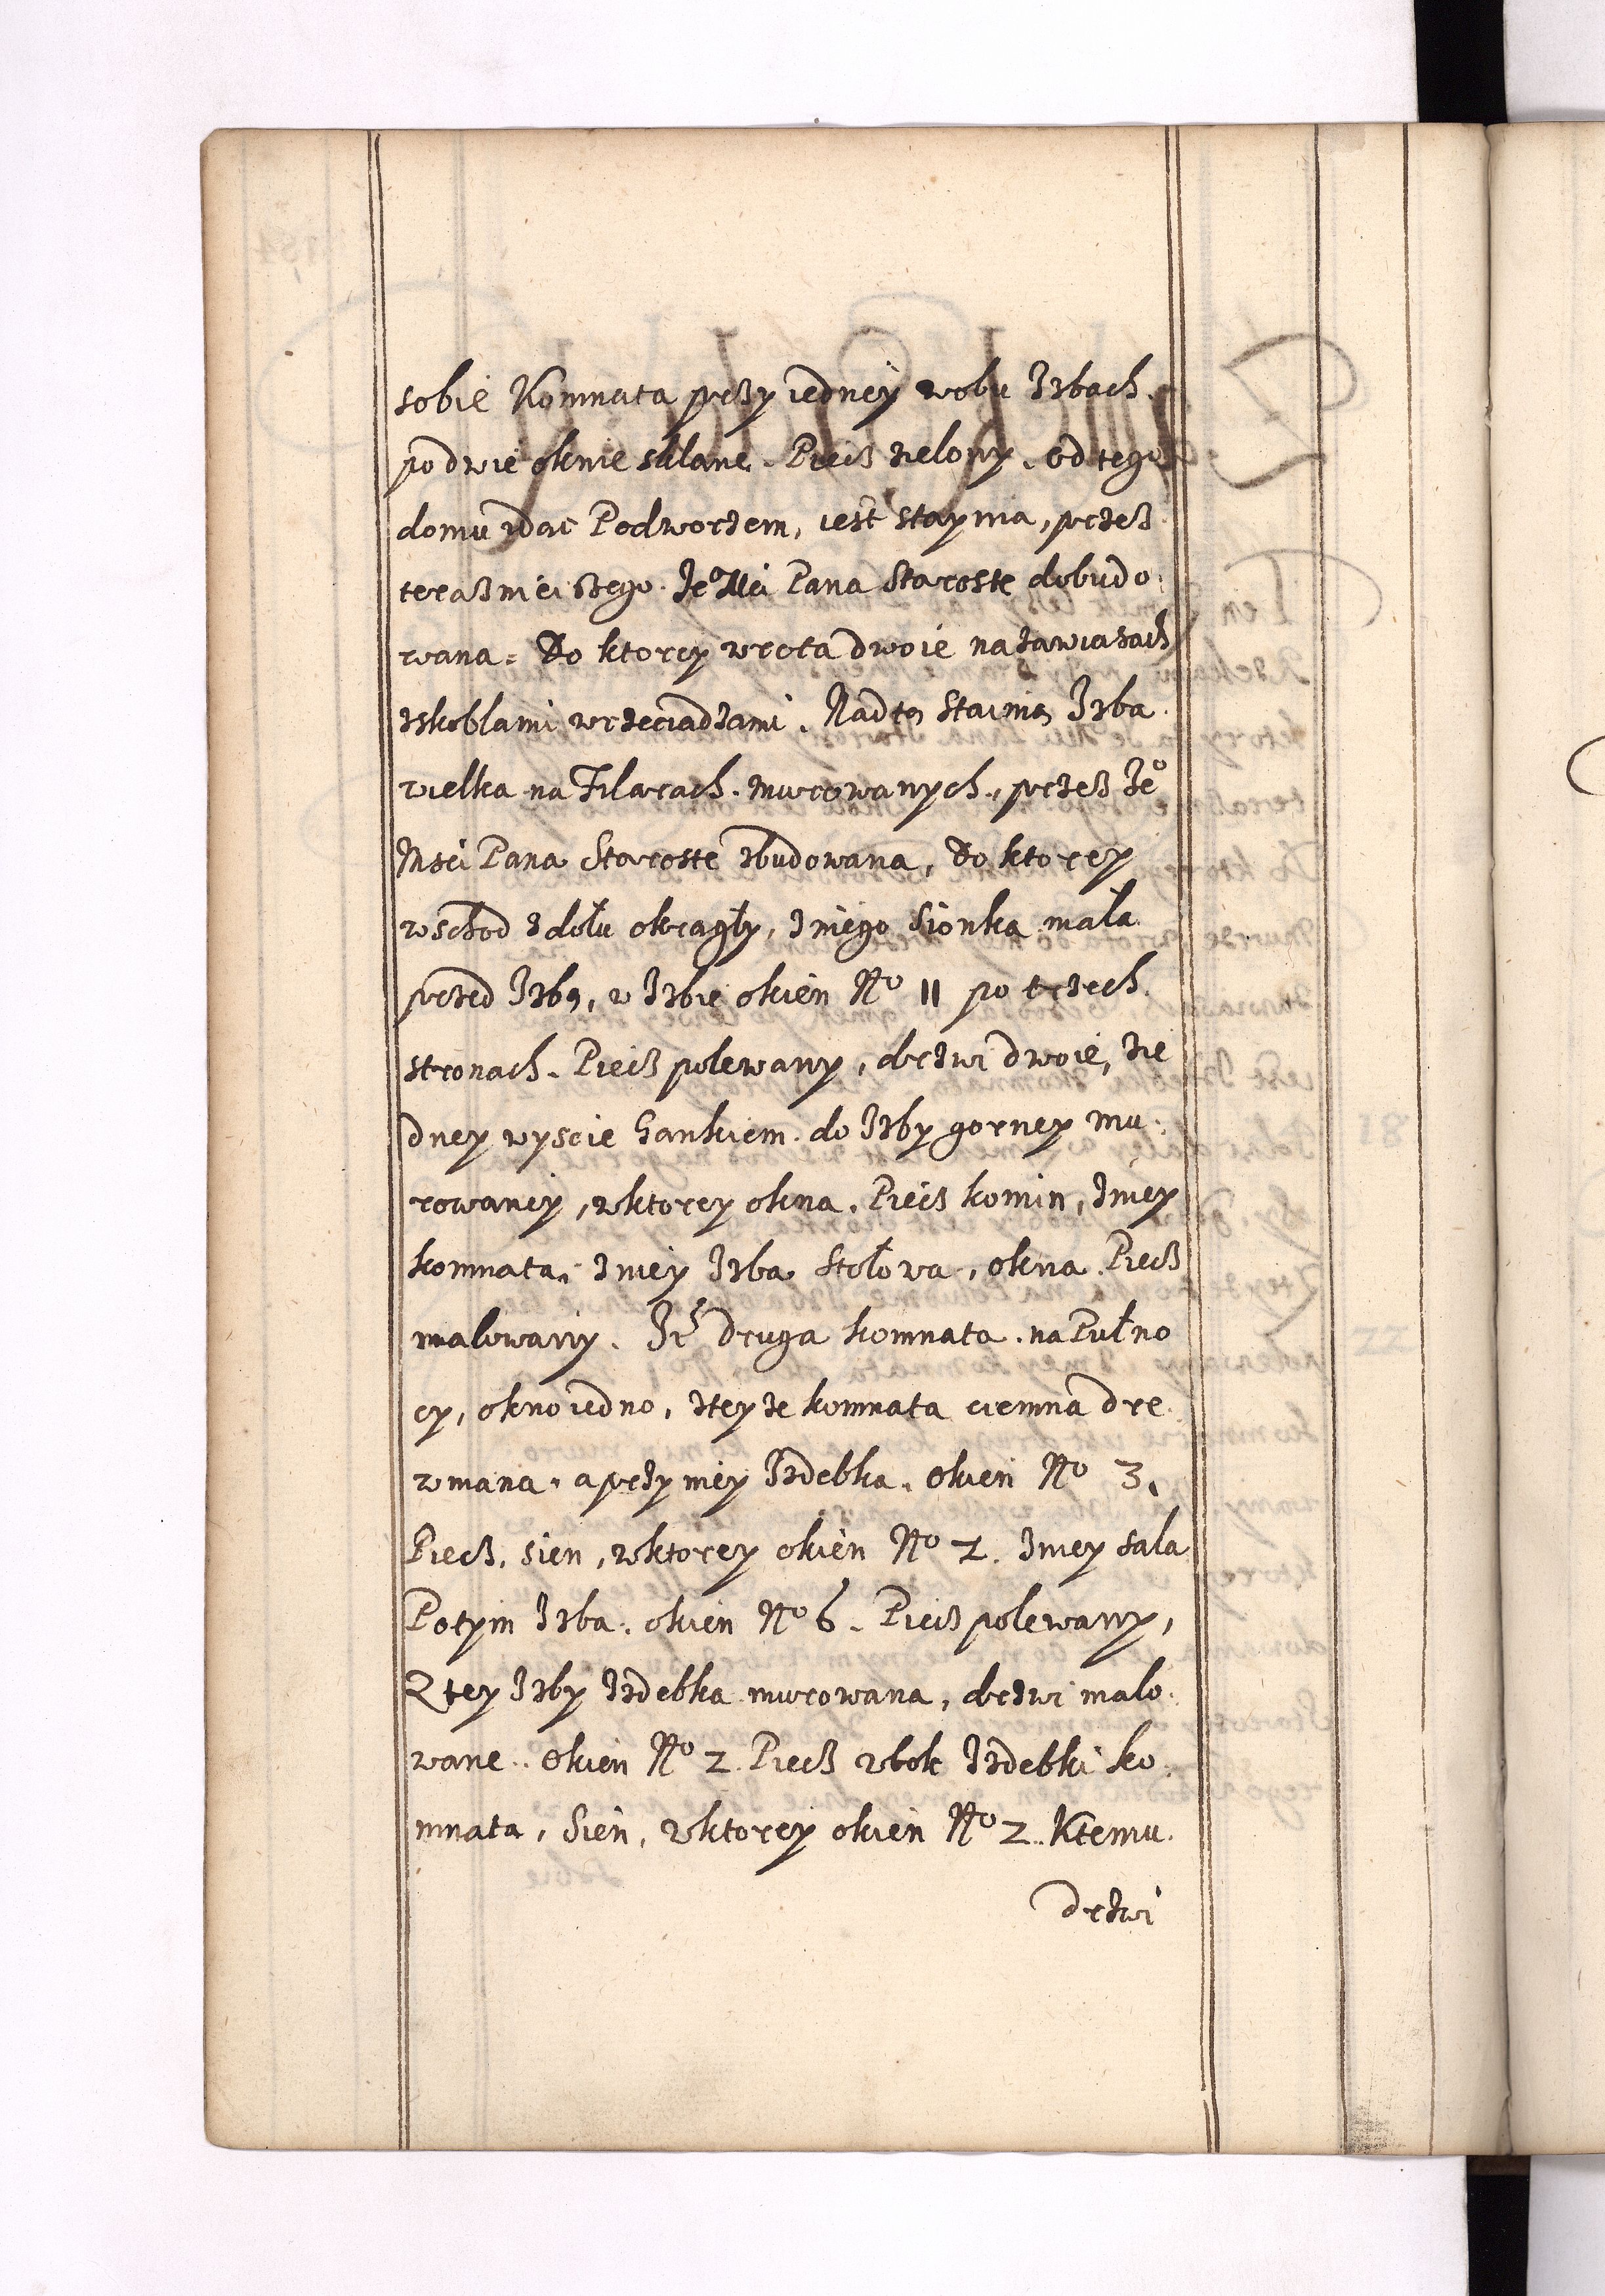 sobie Komnata przy iedney wobu Izbach.
po dwie oknie sklane. Piecz zielony. od tego
domu idąc Podworzem, iest staynia, przesz
terasznieiszego Je Mci Pana Staroste dobudo
wana. Do ktorey wrota dwoie na zawiasach
zskoblami wrzeciadzami. Nadtą Stainią Izba
wielka na Filarach murowanych, przesz Jeº
Msci Pana Staroste zbudowana, do ktorey
wschod zdołu okrągły, zniego Sionka mała
przed Izbą, w Izbie okien Nº 11 po trzech
stronach. Piecz polewany, drzwi dwoie, zie
dney wyscie Gankiem do Izby gorney mu
rowaney, wktorey okna. Piecz komin, zniey
komnata. zniey Izba Stołowa, okna. Piecz
malowany. It druga komnata na Pułno
cy, okno iedno, zteyze komnata ciemna dre
wniana, a przy niey Izdebka. okien Nº 3.
Piecz, sien, wktorey okien Nº 2. zniey sala
Potym Izba. okien Nº 6. Piecz polewany,
Z tey Izby Izdebka murowana, drzwi malo
wane. okien Nº 2. Piecz wbok Izdebki ko
mnata, Sien, wktorey okien Nº 2. Ktemu
drzwi